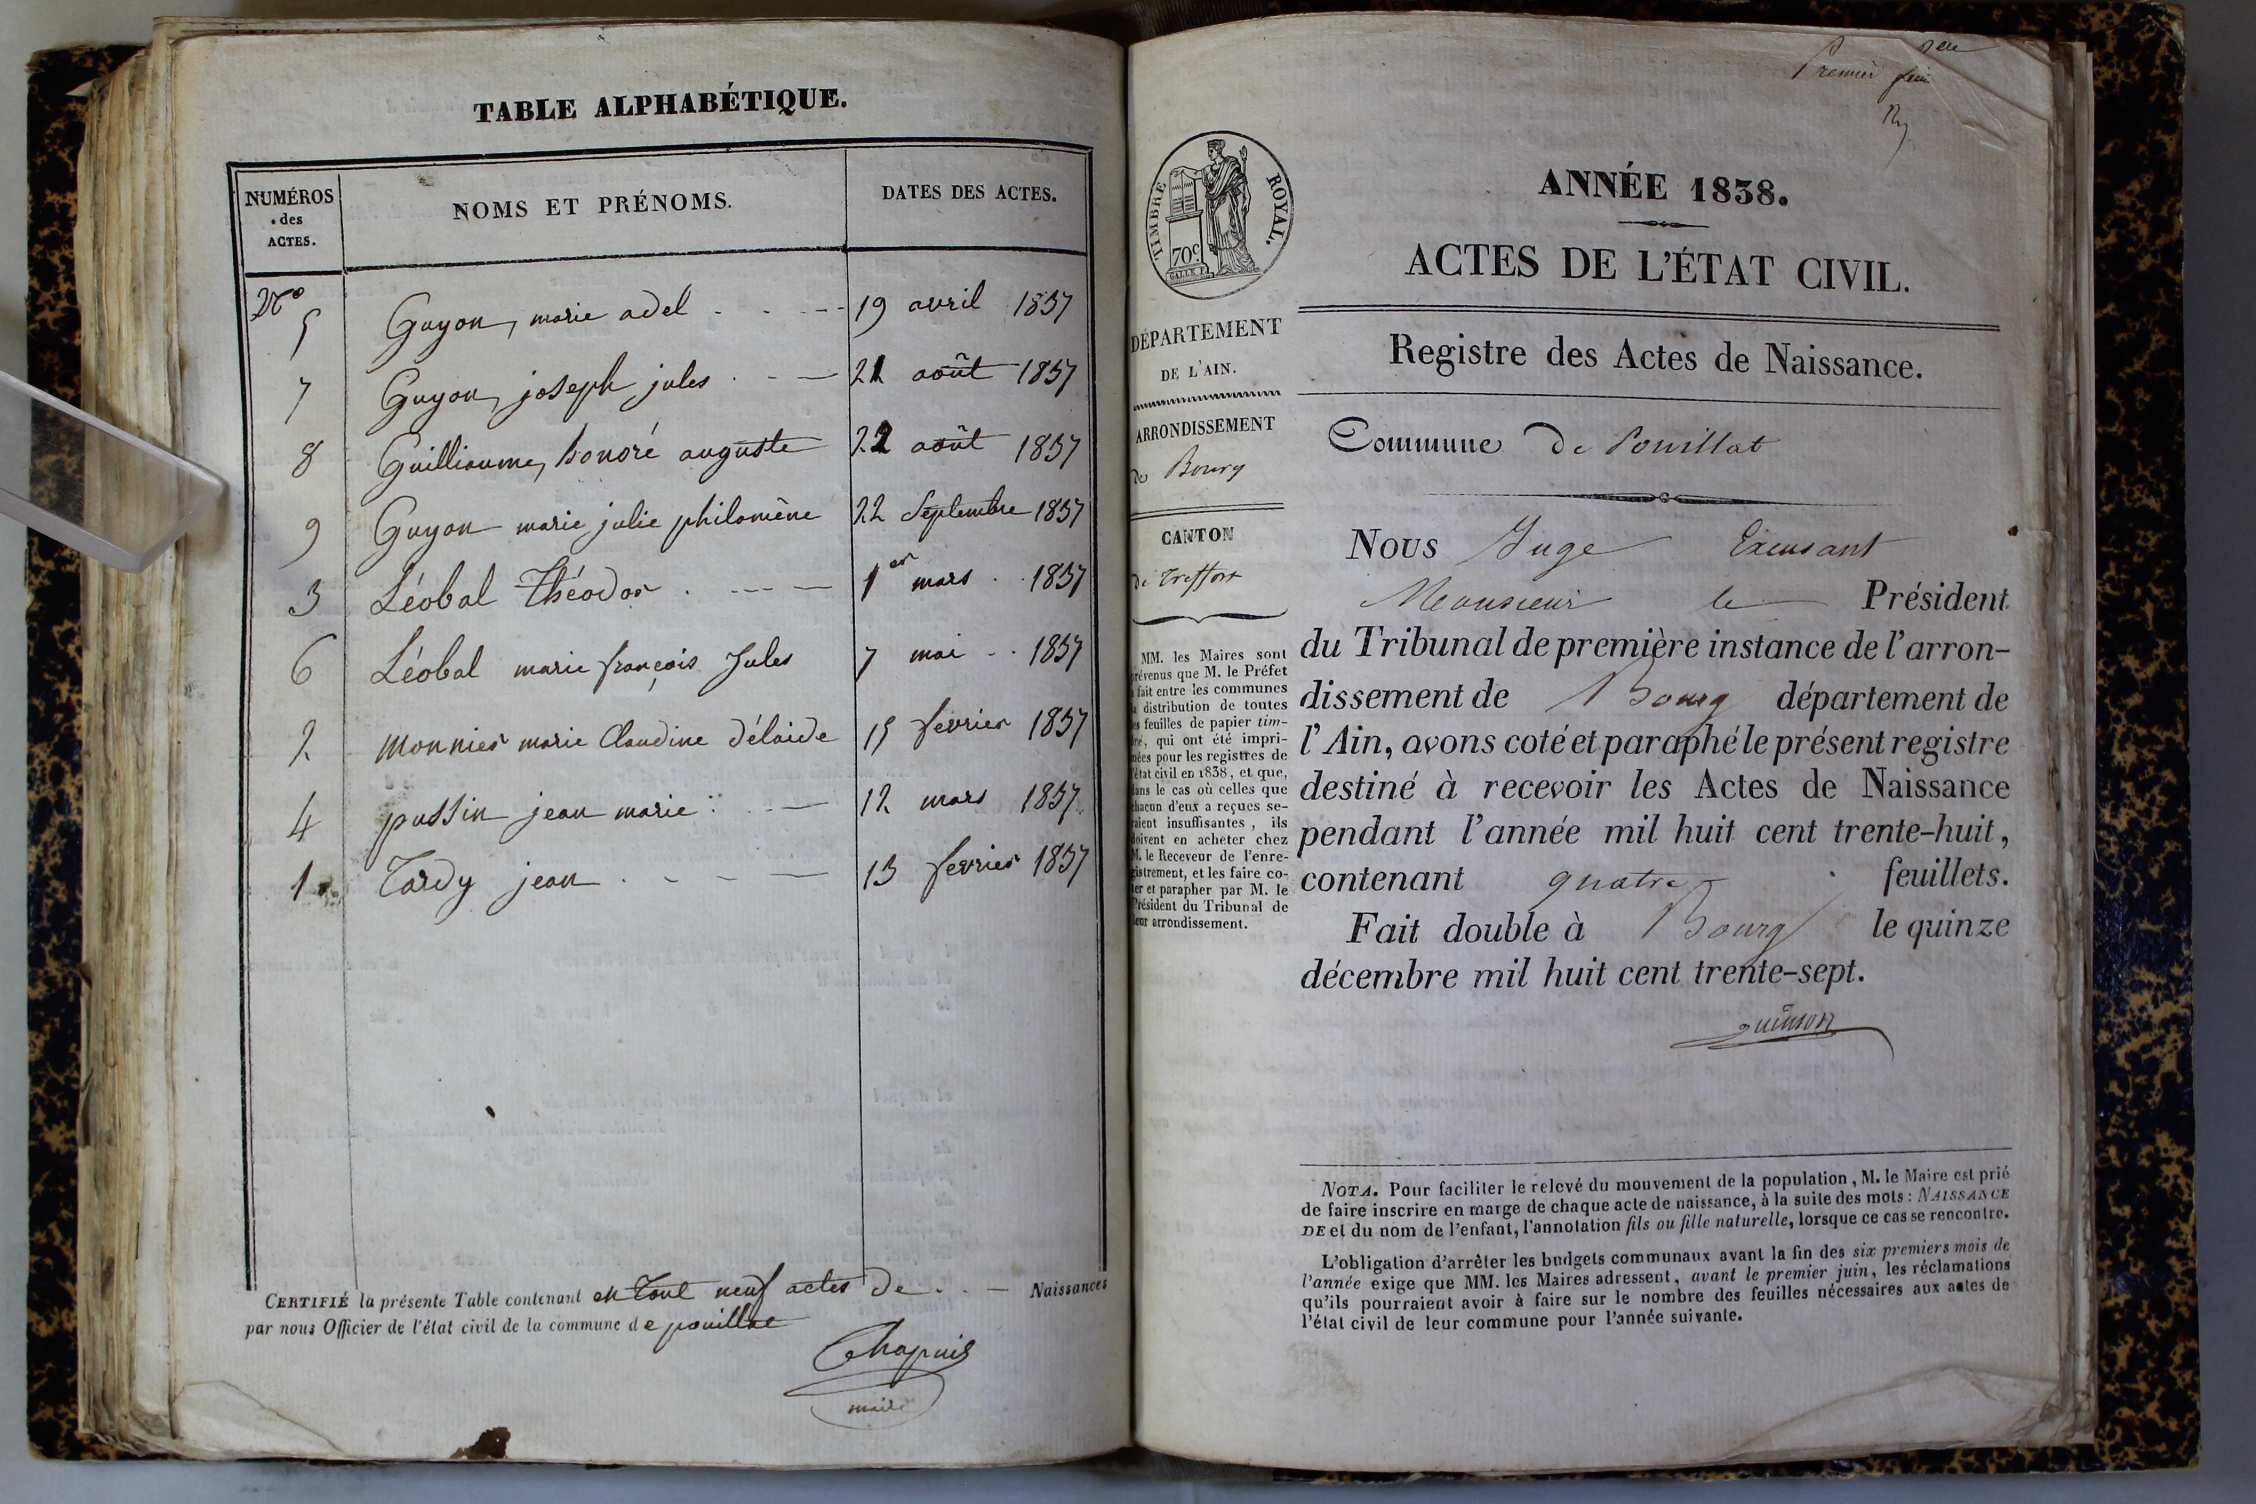 TABLE ALPHABÉTIQUE.
NUMÉROS des ACTES.
NOMS ET PRÉNOMS.
DATES DES ACTES.
No 5 Guyon, marie adel 19 avril 1837
7 Guyon, joseph jules 21 août 1837
8 Guillioume, honoré auguste 22 août 1837
9 Guyon marie julie philomène 22 Septembre 1837
3 Léobal Théodor 1er mars 1837
6 Léobal marie françois Jules 7 mai 1837
2 Monnier marie Claudine Délaide 15 fevrier 1837
4 pussin jean marie 12 mars 1837
1 Tardy jean 13 fevrier 1837
CERTIFIÉ la présente Table contenant en Tout neuf actes De Naissances
par nous Officier de l'état civil de la commune de pouillat
Chapuis
maire
Premier
TIMBRE ROYAL.
70c
ANNÉE 1838.
ACTES DE L'ÉTAT CIVIL.
DÉPARTEMENT
DE L'AIN.
ARRONDISSEMENT
de Bourg
CANTON
de Treffort
MM. les Maires sont
prévenus que M. le Préfet
a fait entre les communes
la distribution de toutes
les feuilles de papier tim-
bré, qui ont été impri-
mées pour les registres de
l'état civil en 1838, et que,
dans le cas où celles que
chacun d'eux a reçues se-
raient insuffisantes, ils
doivent en acheter chez
M. le Receveur de l'enre-
gistrement, et les faire co-
ter et parapher par M. le
Président du Tribunal de
leur arrondissement.
Registre des Actes de Naissance.
Commune de Pouillat
NOUS Juge Excusant
Monsieur le Président
du Tribunal de première instance de l'arron-
dissement de Bourg département de
l'Ain, avons coté et paraphé le présent registre
destiné à recevoir les Actes de Naissance
pendant l'année mil huit cent trente-huit,
contenant quatre feuillets.
Fait double à Bourg le quinze
décembre mil huit cent trente-sept.
quinson
NOTA. Pour faciliter le relevé du mouvement de la population, M. le Maire est prié
de faire inscrire en marge de chaque acte de naissance, à la suite des mots : NAISSANCE
DE et du nom de l'enfant, l'annotation fils ou fille naturelle, lorsque ce cas se rencontre.
L'obligation d'arrêter les budgets communaux avant la fin des six premiers mois de
l'année exige que MM. les Maires adressent, avant le premier juin, les réclamations
qu'ils pourraient avoir à faire sur le nombre des feuilles nécessaires aux actes de
l'état civil de leur commune pour l'année suivante.